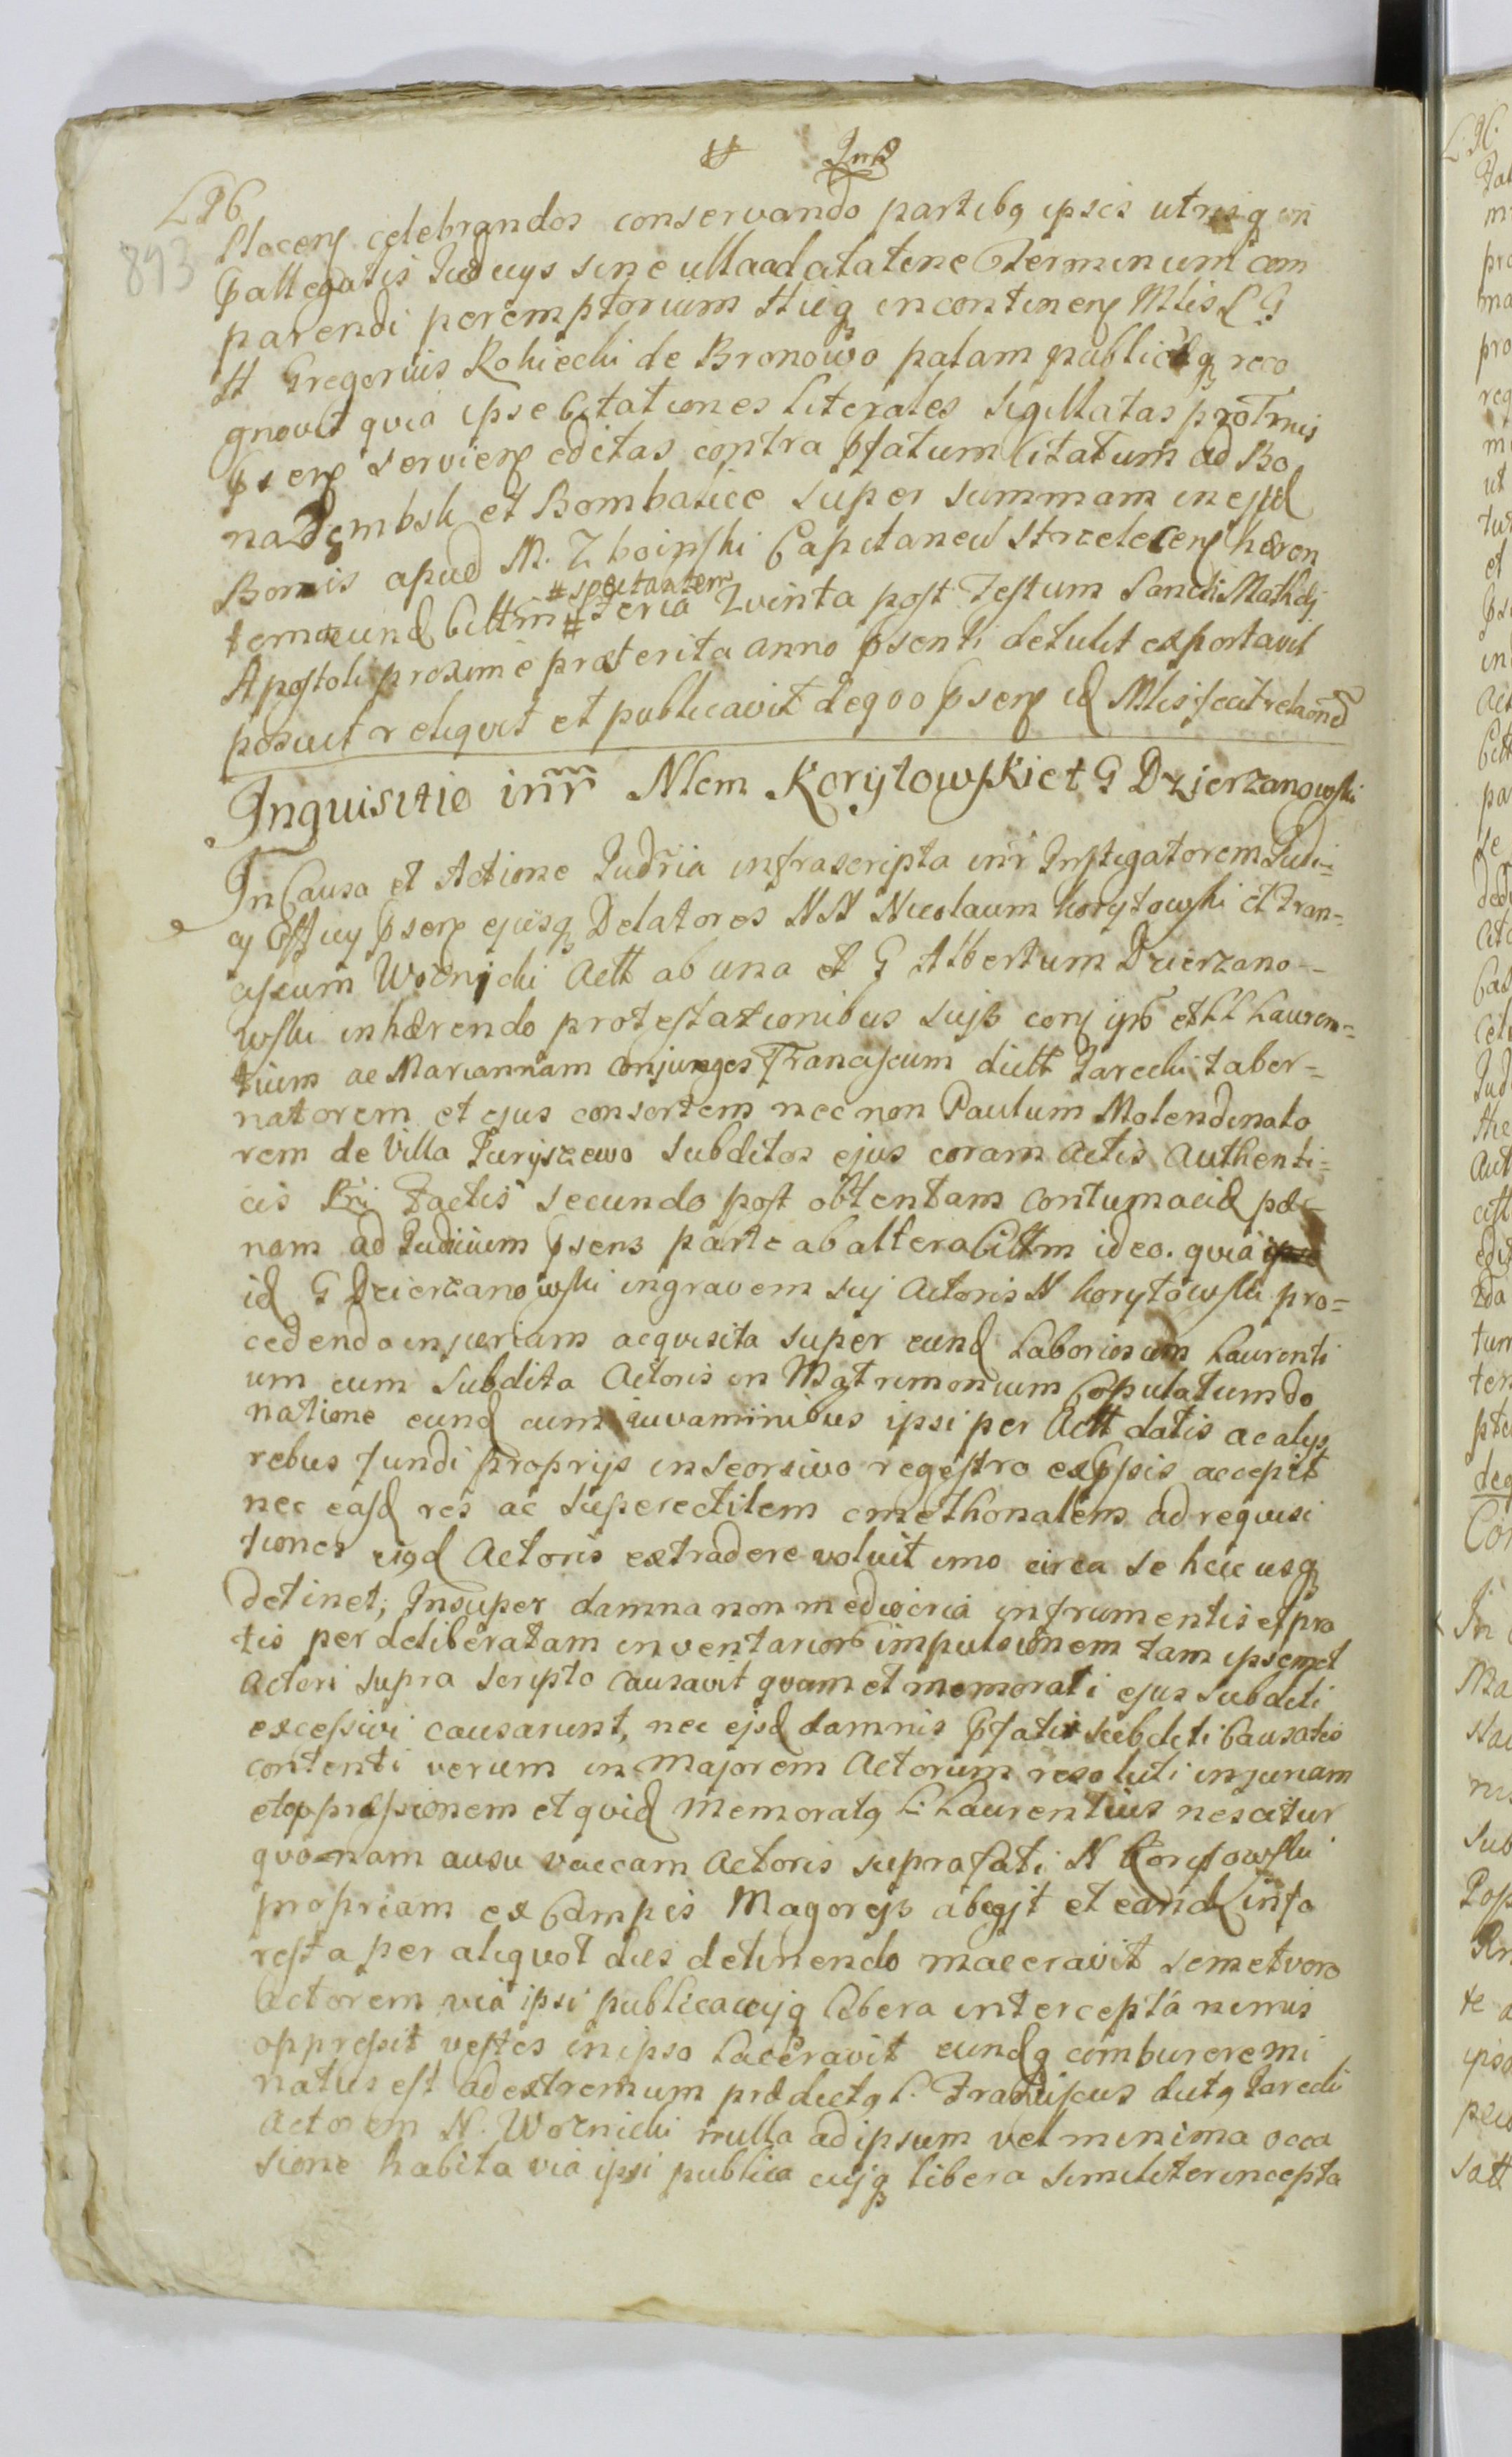 Inß
L96
893
Plocens celebrandos conservando partibq ipsis utrisq in
pallegatis Judicijs sine ulla adcitatione Terminum com
parendi peremptorium Hicq incontinens Mlis L G
N Gregorius Rokicchi de Bronowo palam publicéq reco
gnovit quia ipse Citationes literales sigillatas pro Tmis
psens serviens editas contra pfatum Citatum ad Bo
na Dembsk et Bombalice super summam in ejsd
Bonis apud M. Zboinski Capitaneu Strzelecens hæren
#spectantem
tem eund Cittm # Feria Quinta post Festum Sancti Mathæj
Apostoli proxime præterita anno psenti detulit exportavit
posuit reliquit et publicavit de quo psens id Mlis fecit relaõned
Inquisitio inr̃r Nlem Korytowski et G Dzierzanowski
In Causa et Actione Judrĩa infrascripta inr̃ Instigatorem Judi=
cij Officij psens ejusq Delatores NN Nicolaum Korytowski et Fran=
ciscum Woznicki Actt ab una et G Albertum Dzierzano-
wski inhærendo protestationibus suis corß ipß et LL Lauren=
tium ac Mariannam conjuges Franciscum dictt Jarecki taber=
natorem et ejus consortem nec non Paulum Molendinato
rem de Villa Juryszewo subditos ejus coram Actis Authenti=
cis factis secundo post obtentam contumaciæ pæ-
nam ad Judicium psens parte ab altera Cittm ideo. quia
id G Dzierzanowski in gravem sui Actoris N Korytowski pro=
cedendo injuriam acquisita super eund Laboriosum Laurenti
um cum subdita Actoris in Matrimonium Copulatum do
natione eund cum iuvaminibus ipsi per Actt datis ac alijs
rebus fundi proprijs in seorsivo regestro expssis accepit
nec easd res ac supelectilem cmethonalem ad requisi
tiones eisd Actoris extradere voluit imo circa se huc usq
detinet; Insuper damna non mediocria in frumentis et pra
tis per deliberatam inventariorß impulsionem tam ipsemet
Actori supra scripto causavit quam et memorati ejus subditi
excessivi causarunt, nec ejsd damnis pfatis subditi causatis
contenti verum in majorem Actorum resoluti injuriam
et oppressionem et quid memoratq L. Laurentius nescitur
quo nam ausu vaccam Actoris suprafati N Korytowski
propriam ex Campis Magoreis abegit et eand info
resta per aliquot dies detinendo maceravit semet vero
Actorem via ipsi publica cujq libera intercepta nimis
oppressit vestes in ipso laceravit eundq comburere mi
natus est ad extremum prædictq L. Franciscus dictq Jarecki
Actorem N. Woznicki nulla ad ipsum vel minima occa
sione habita via ipsi publica cujq libera similiter incepta